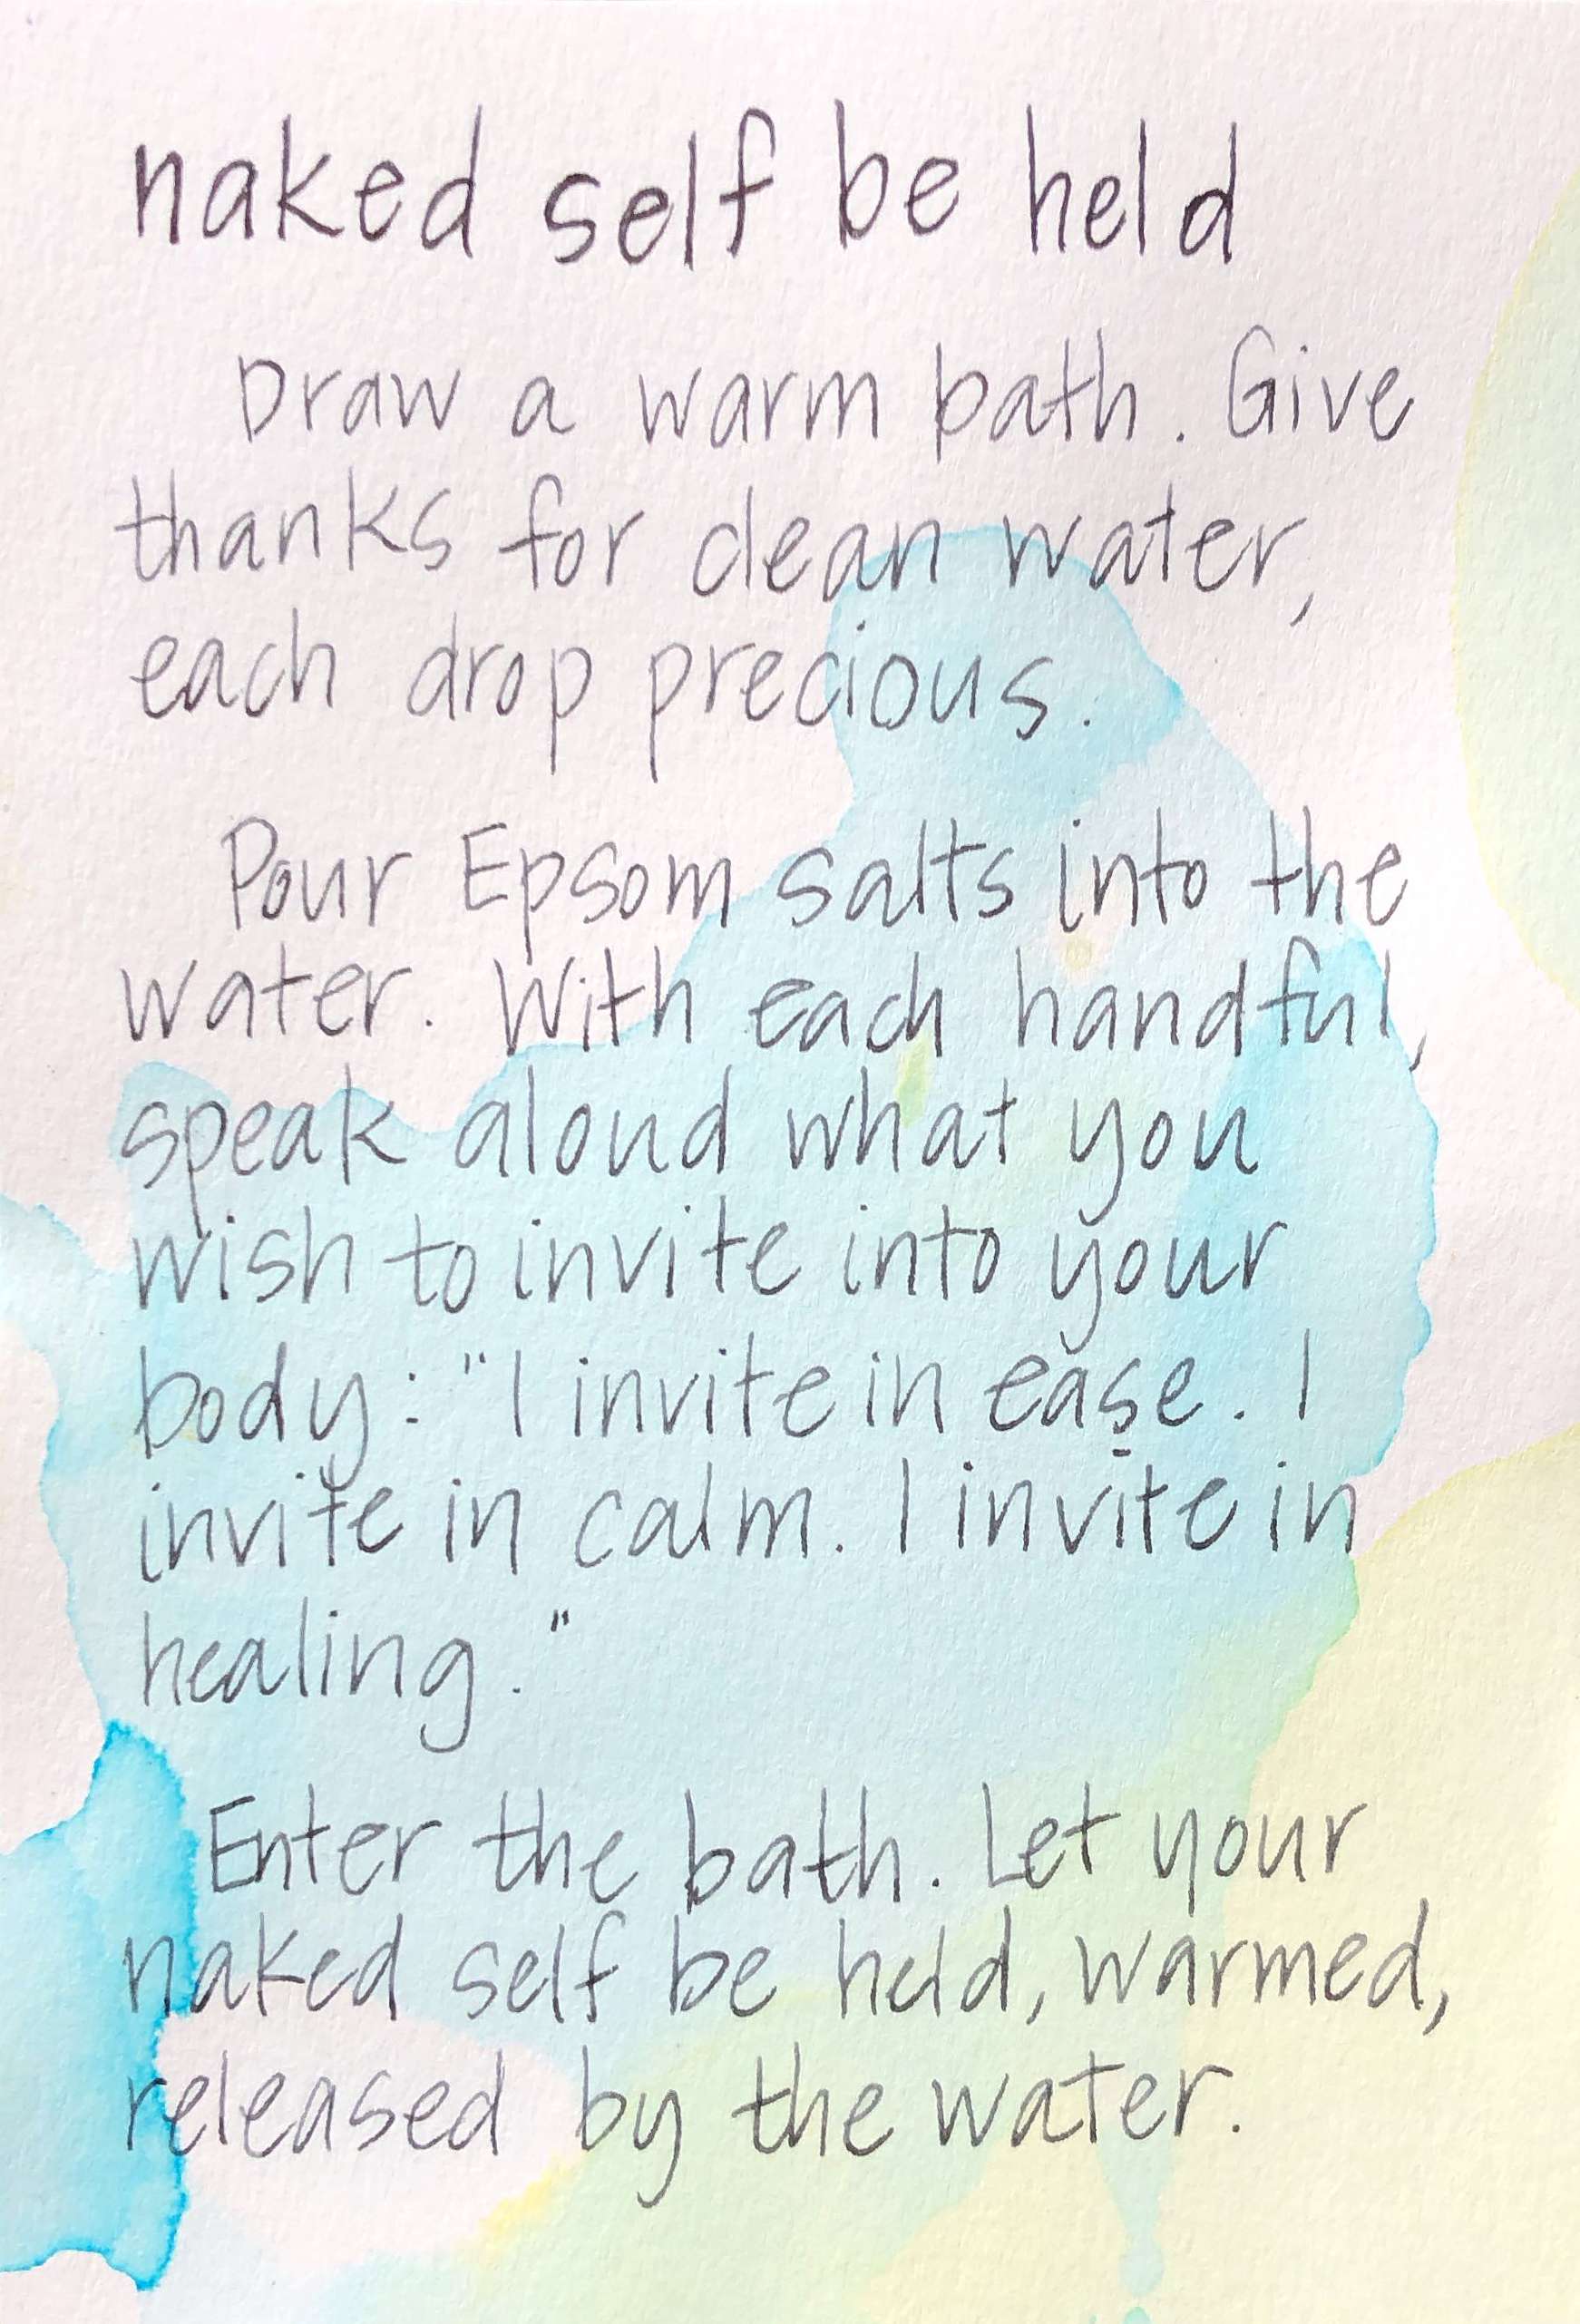 naked self be held
Draw a warm bath. Give
thanks for clean water,
each drop precious.
Pour Epsom salts into the
water. With each handful,
speak aloud what you
wish to invite into your
body: "I invite in ease. I
invite in calm. I invite in
healing."
Enter the bath. Let your
naked self be held, warmed,
released by the water.